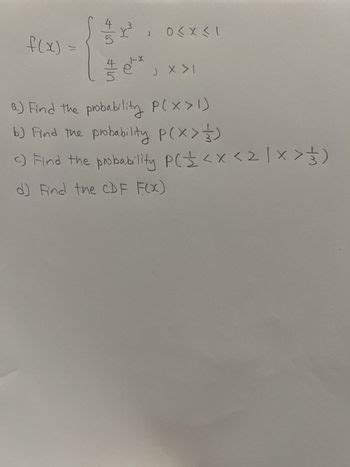 f(x) = { 4/5 x³ , 0 ≤ x ≤ 1
4/5 e^(1-x) , x > 1
a) Find the probability P(X>1)
b) Find the probability P(X>1/3)
c) Find the probability P(1/2 < X < 2 | X > 1/3)
d) Find the CDF F(X)